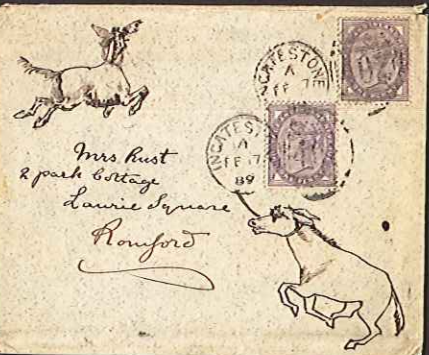 INGATESTONE
A
FE 7
INGATEST
A
FE 17
89
Mrs Rust
2 park Cottage
Laurie Square
Romford